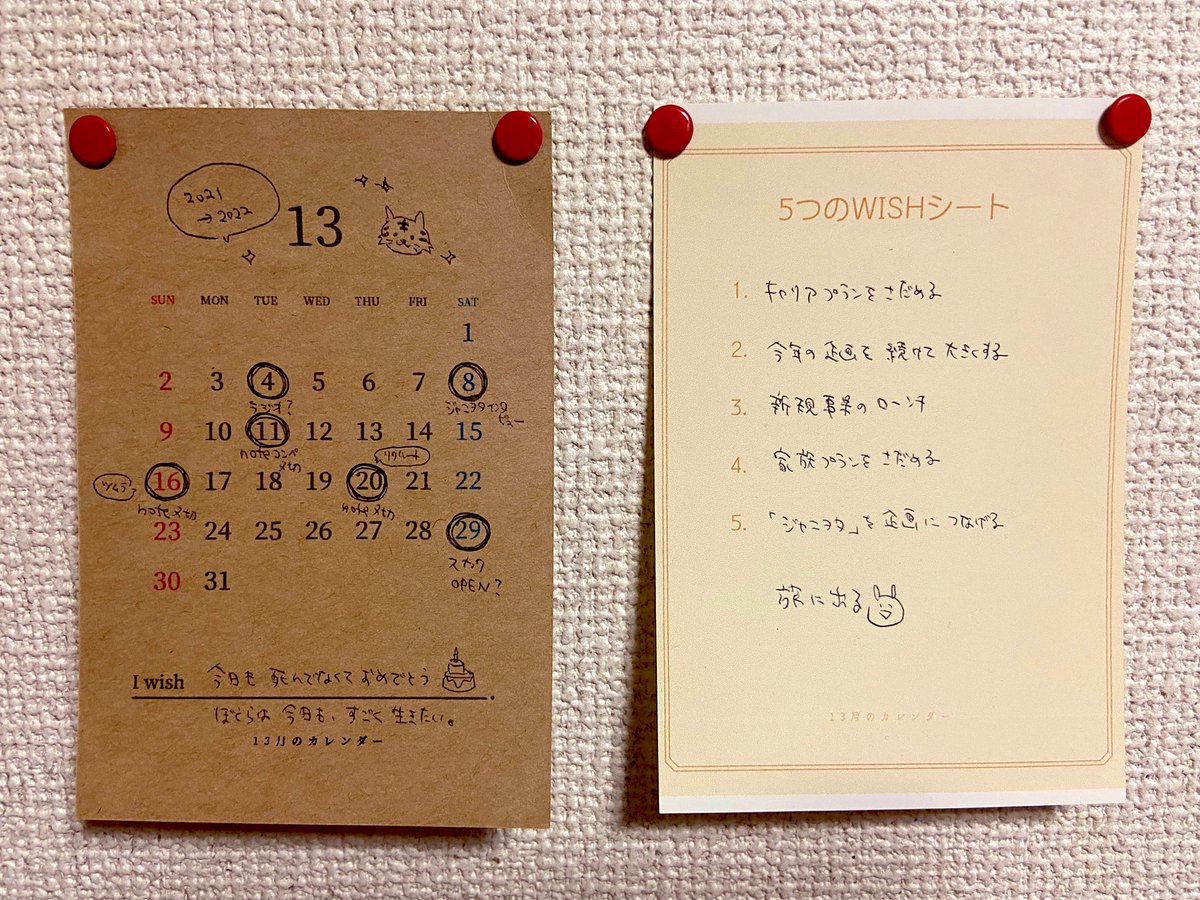 2021
→2022
13
SUN MON TUE WED THU FRI SAT
1
2 3 4 5 6 7 8
ラジオ? ジャニヲタインタ
ビュー
9 10 11 12 13 14 15
noteコンペ
〆切
リクルート
16 17 18 19 20 21 22
ツムラ
note〆切 note〆切
23 24 25 26 27 28 29
スナック
OPEN?
30 31
I wish 今日も死んでなくておめでとう
ぼくらは今日も、すごく生きたい。
13月のカレンダー
5つのWISHシート
1. キャリアプランをさだめる
2. 今年の企画を続けて大きくする
3. 新規事業のローンチ
4. 家族プランをさだめる
5. 「ジャニヲタ」を企画につなげる
旅に出る
13月のカレンダー